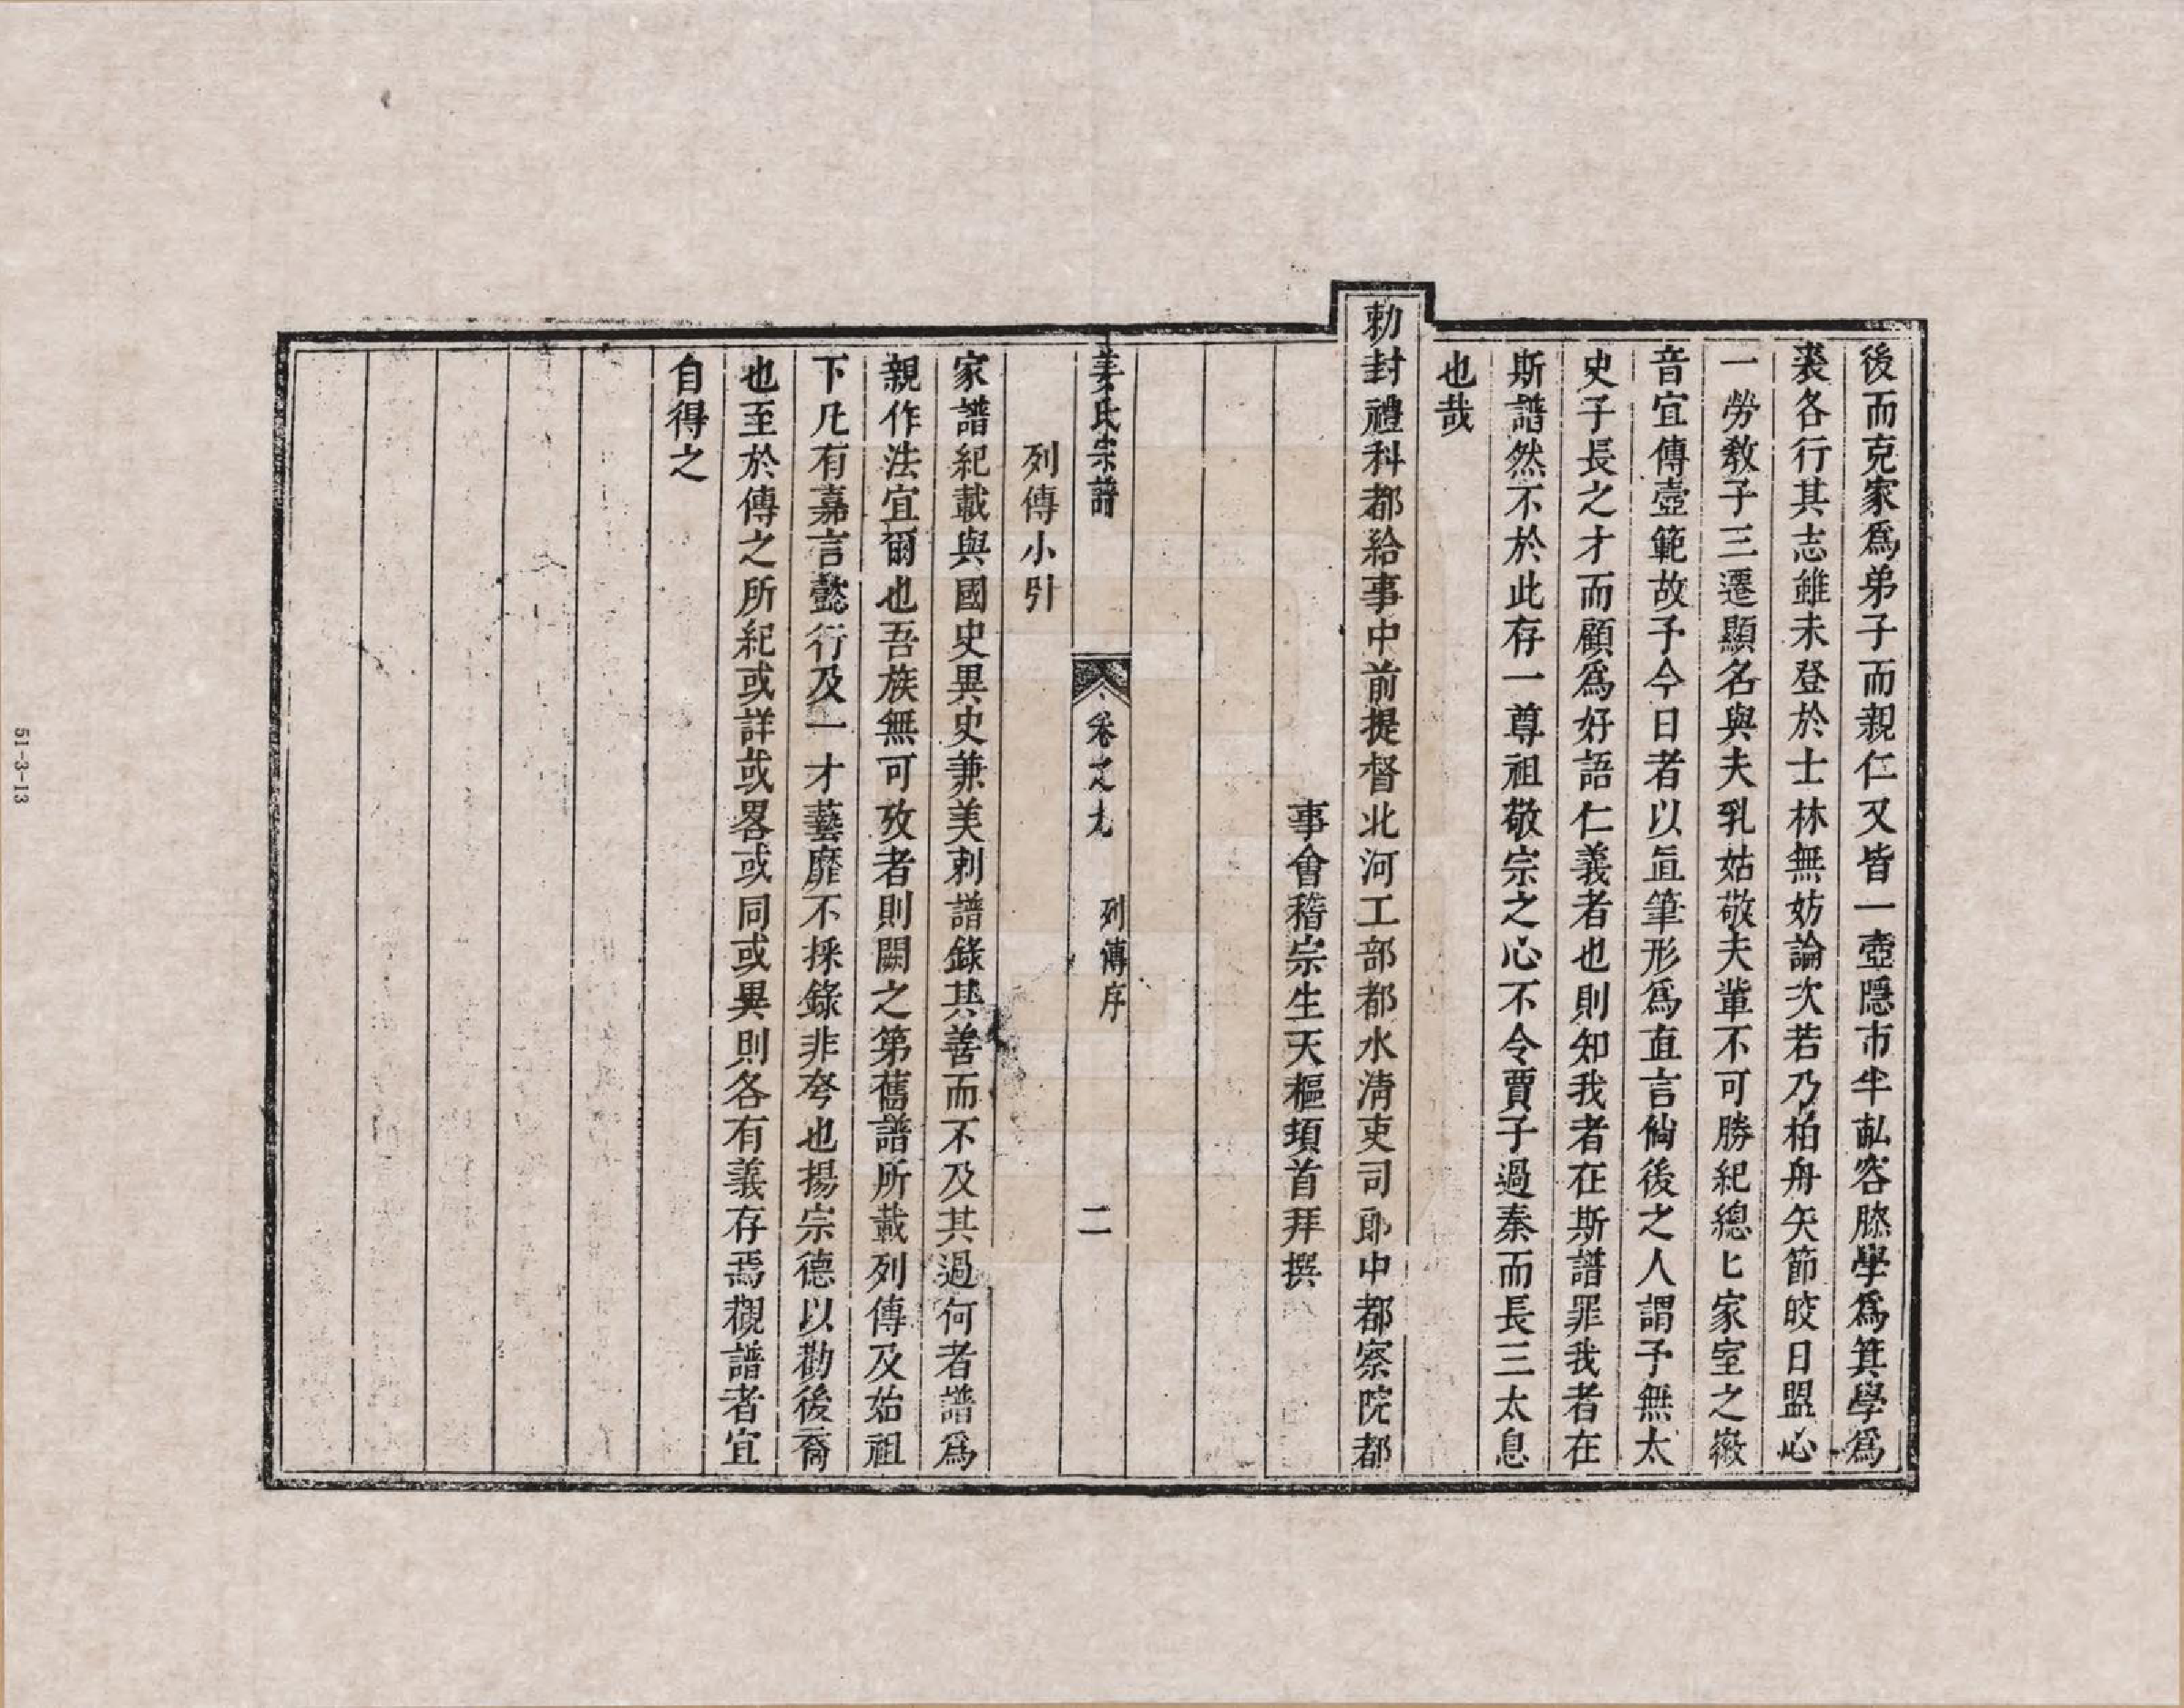 後而克家爲弟子而親仁又皆一壺隱市半畝容膝學爲箕學爲
裘各行其志雖未登於士林無妨論次若乃柏舟矢節皎日盟心
一勞教子三遷顯名與夫乳姑敬夫夫輩不可勝紀總匕家室之徽
音宜傳壼範故予今日者以直筆形爲直言倘後之人謂予無太
史子長之才而顧爲好語仁義者也則知我者在斯譜罪我者在
斯譜然不於此存一尊祖敬宗之心不令賈子過秦而長三太息
也哉
勅封禮科都給事中前提督北河工部都水清吏司郎中都察院都
事會稽宗生天樞頊首拜撰
姜氏宗譜 卷之九 列傳序 二
列傳小引
家譜紀載與國史異史兼美刺譜錄其善而不及其過何者譜爲
親作法宜爾也吾族無可攷者則闕之第舊譜所載列傳及始祖
下凡有嘉言懿行及一才藝靡不採錄非夸也揚宗德以勸後裔
也至於傳之所紀或詳或畧或同或異則各有義存焉覌譜者宜
自得之
51-3-13